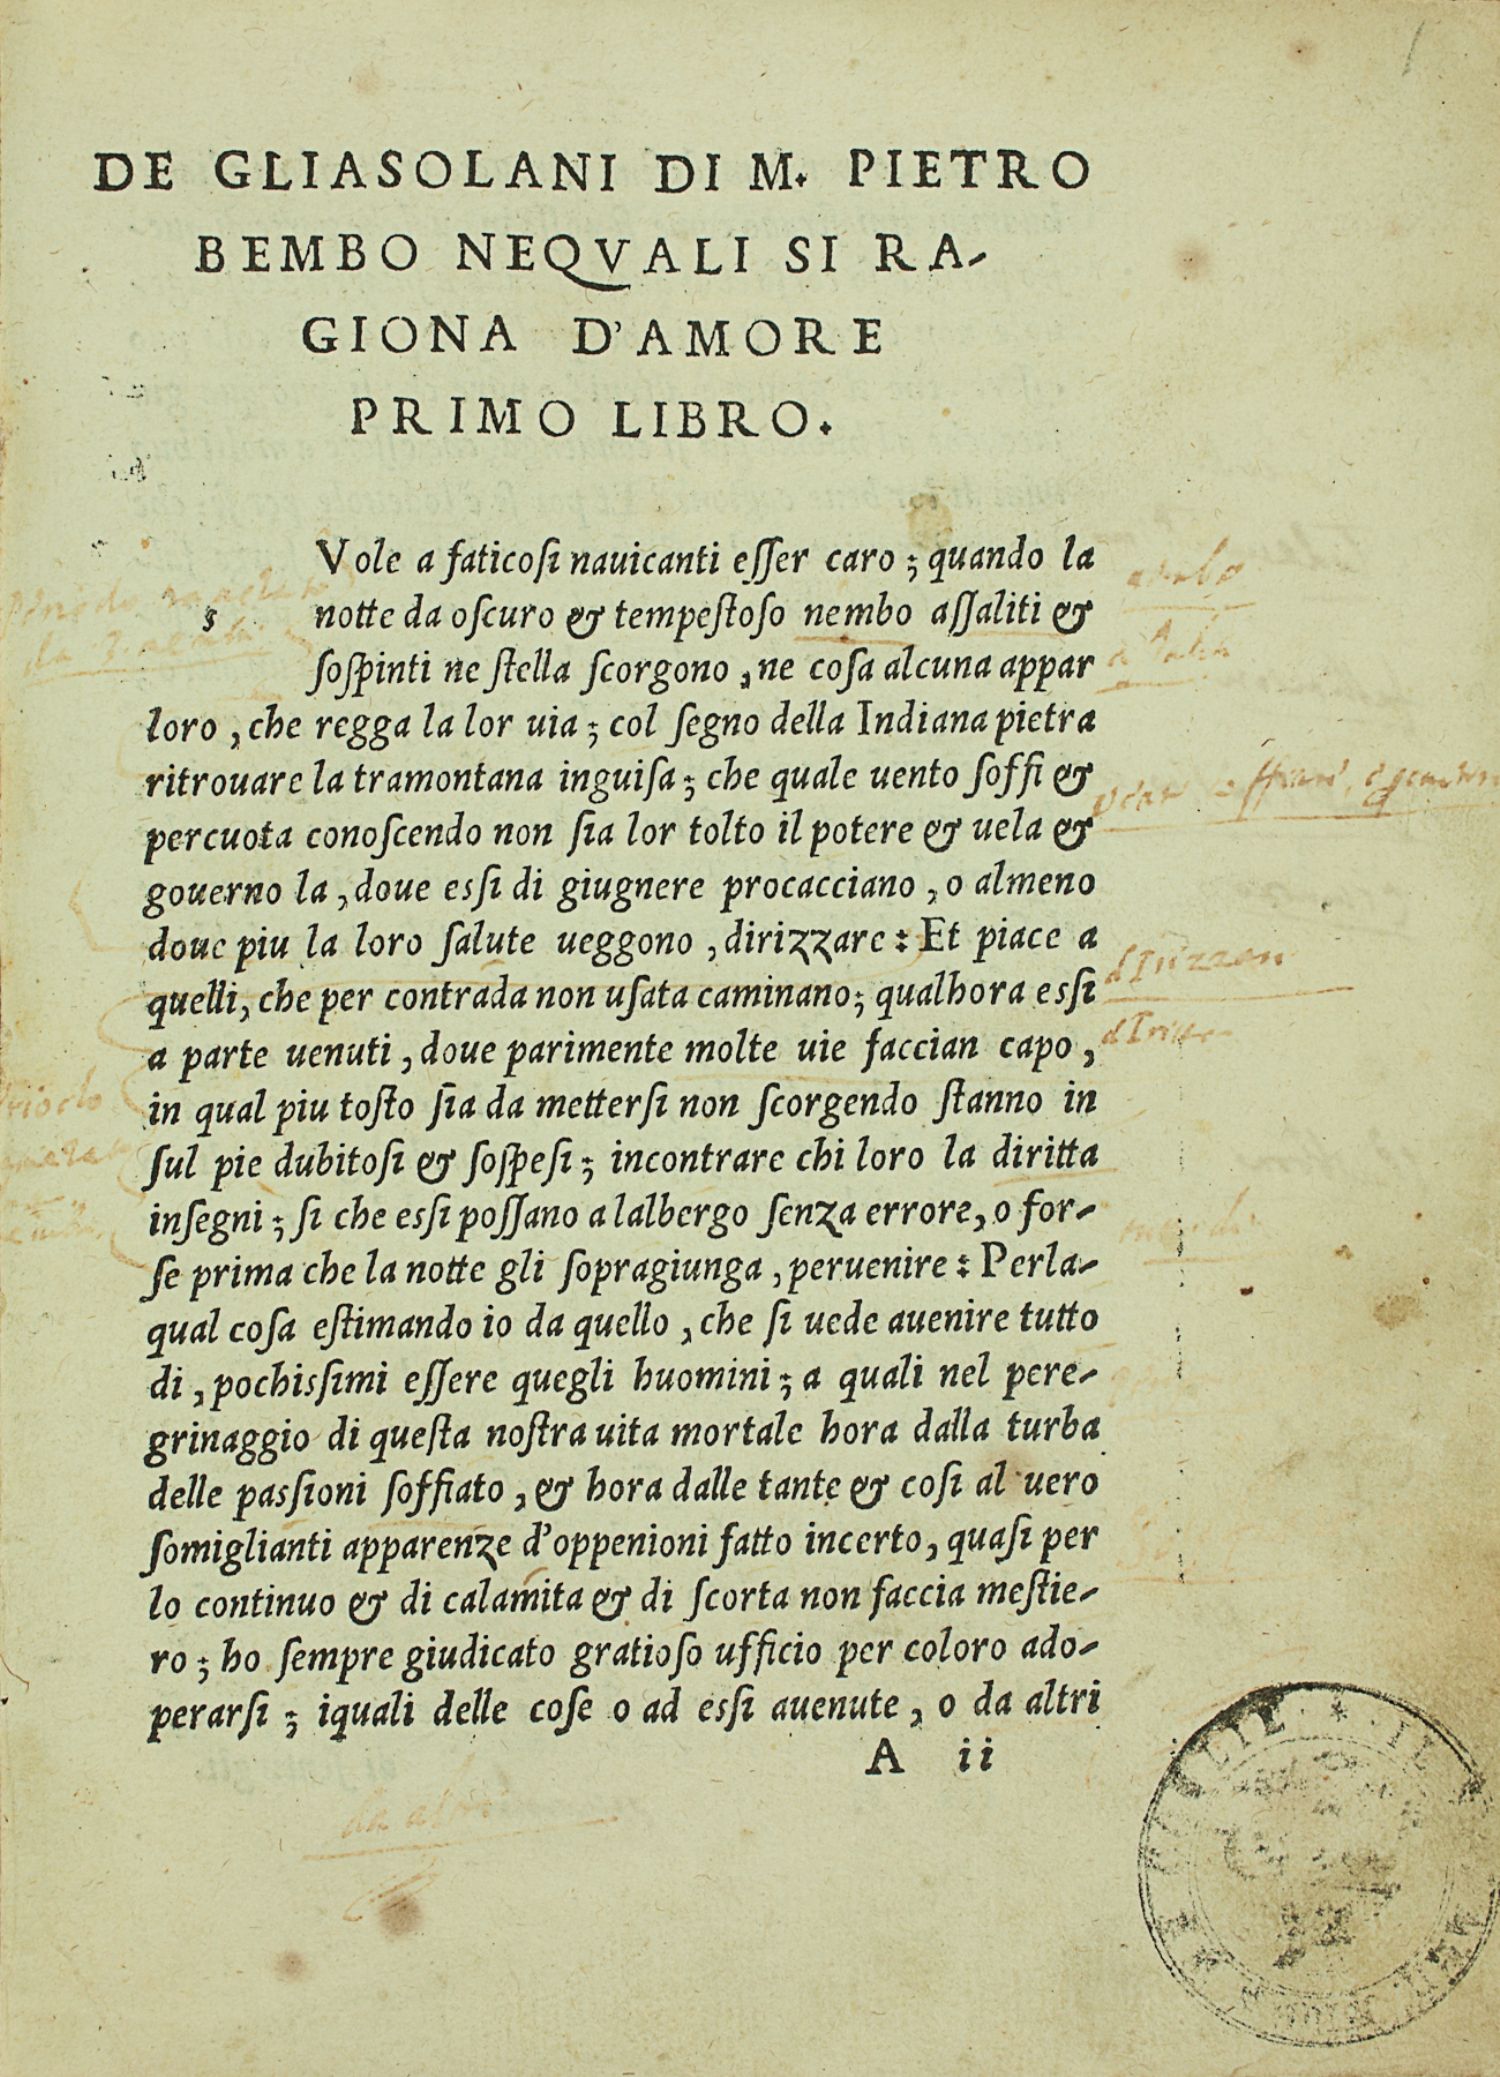 DE GLIASOLANI DI M. PIETRO
BEMBO NEQVALI SI RA-
GIONA D'AMORE
PRIMO LIBRO.
ſ
Vole a faticoſi nauicanti eſſer caro; quando la
notte da oſcuro & tempeſtoſo nembo aſſaliti &
ſoſpinti ne ſtella ſcorgono, ne coſa alcuna appar
loro, che regga la lor uia; col ſegno della Indiana pietra
ritrouare la tramontana inguiſa; che quale uento ſoffi &
percuota conoſcendo non ſia lor tolto il potere & uela &
gouerno la, doue esſi di giugnere procacciano, o almeno
doue piu la loro ſalute ueggono, dirizzare: Et piace a
quelli, che per contrada non uſata caminano; qualhora esſi
a parte uenuti, doue parimente molte uie faccian capo,
in qual piu toſto ſia da metterſi non ſcorgendo ſtanno in
ſul pie dubitoſi & ſoſpeſi; incontrare chi loro la diritta
inſegni; ſi che esſi poſſano alalbergo ſenza errore, o for-
ſe prima che la notte gli ſopragiunga, peruenire: Perla-
qual coſa eſtimando io da quello, che ſi uede auenire tutto
di, pochisſimi eſſere quegli huomini; a quali nel pere-
grinaggio di queſta noſtra uita mortale hora dalla turba
delle pasſioni ſoffiato, & hora dalle tante & coſi al uero
ſomiglianti apparenze d'oppenioni fatto incerto, quaſi per
lo continuo & di calamita & di ſcorta non faccia meſtie-
ro; ho ſempre giudicato gratioſo ufficio per coloro ado-
perarſi; iquali delle coſe o ad esſi auenute, o da altri
A ii